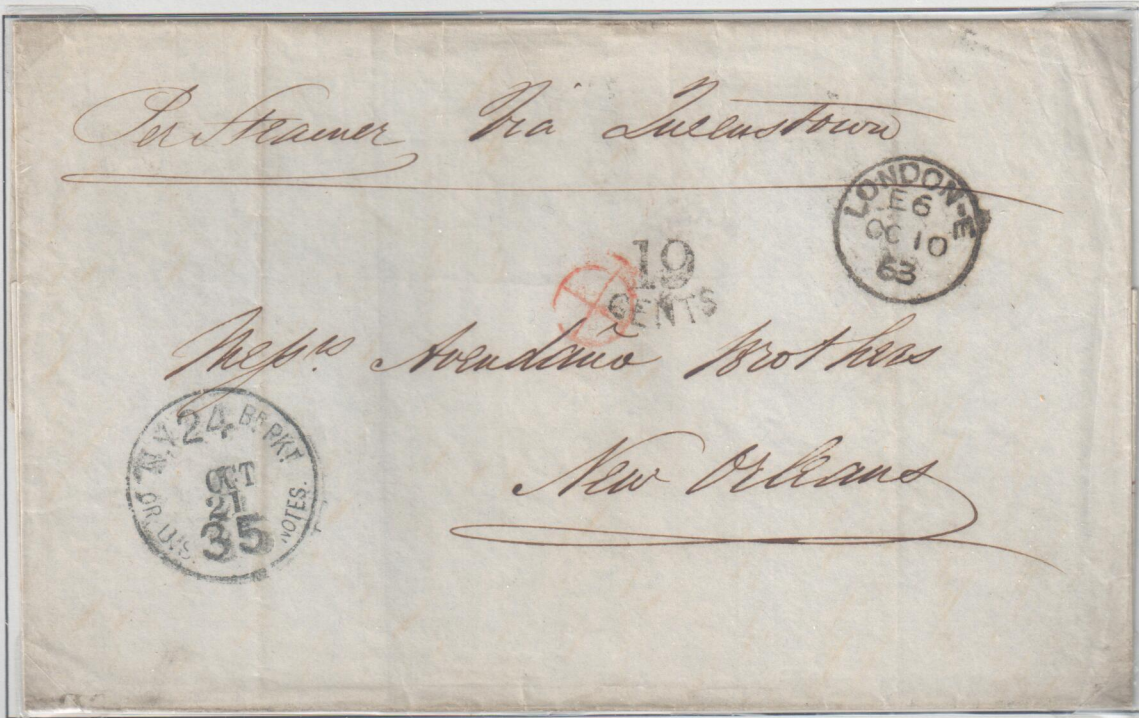 Per Steamer Via Queenstown
LONDON-E
E6
OC 10
63
19
CENTS
Messrs Avendaño Brothers
New Orleans
N.Y. 24 BR PKT
OCT
21
OR U.S. 35 NOTES.